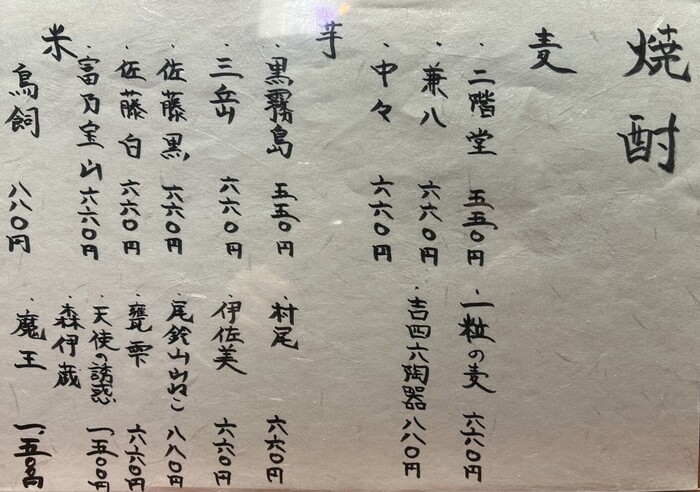 焼酎
麦
・二階堂 五五〇円 ・一粒の麦 六六〇円
・兼八 六六〇円 ・吉四六陶器 八八〇円
・中々 六六〇円
芋
・黒霧島 五五〇円 ・村尾 六六〇円
・三岳 六六〇円 ・伊佐美 六六〇円
・佐藤黒 六六〇円 ・尾鈴山山ねこ 八八〇円
・佐藤白 六六〇円 ・甕雫 六六〇円
・富乃宝山 六六〇円 ・天使の誘惑 一、五〇〇円
・森伊蔵
米
鳥飼 八八〇円 ・魔王